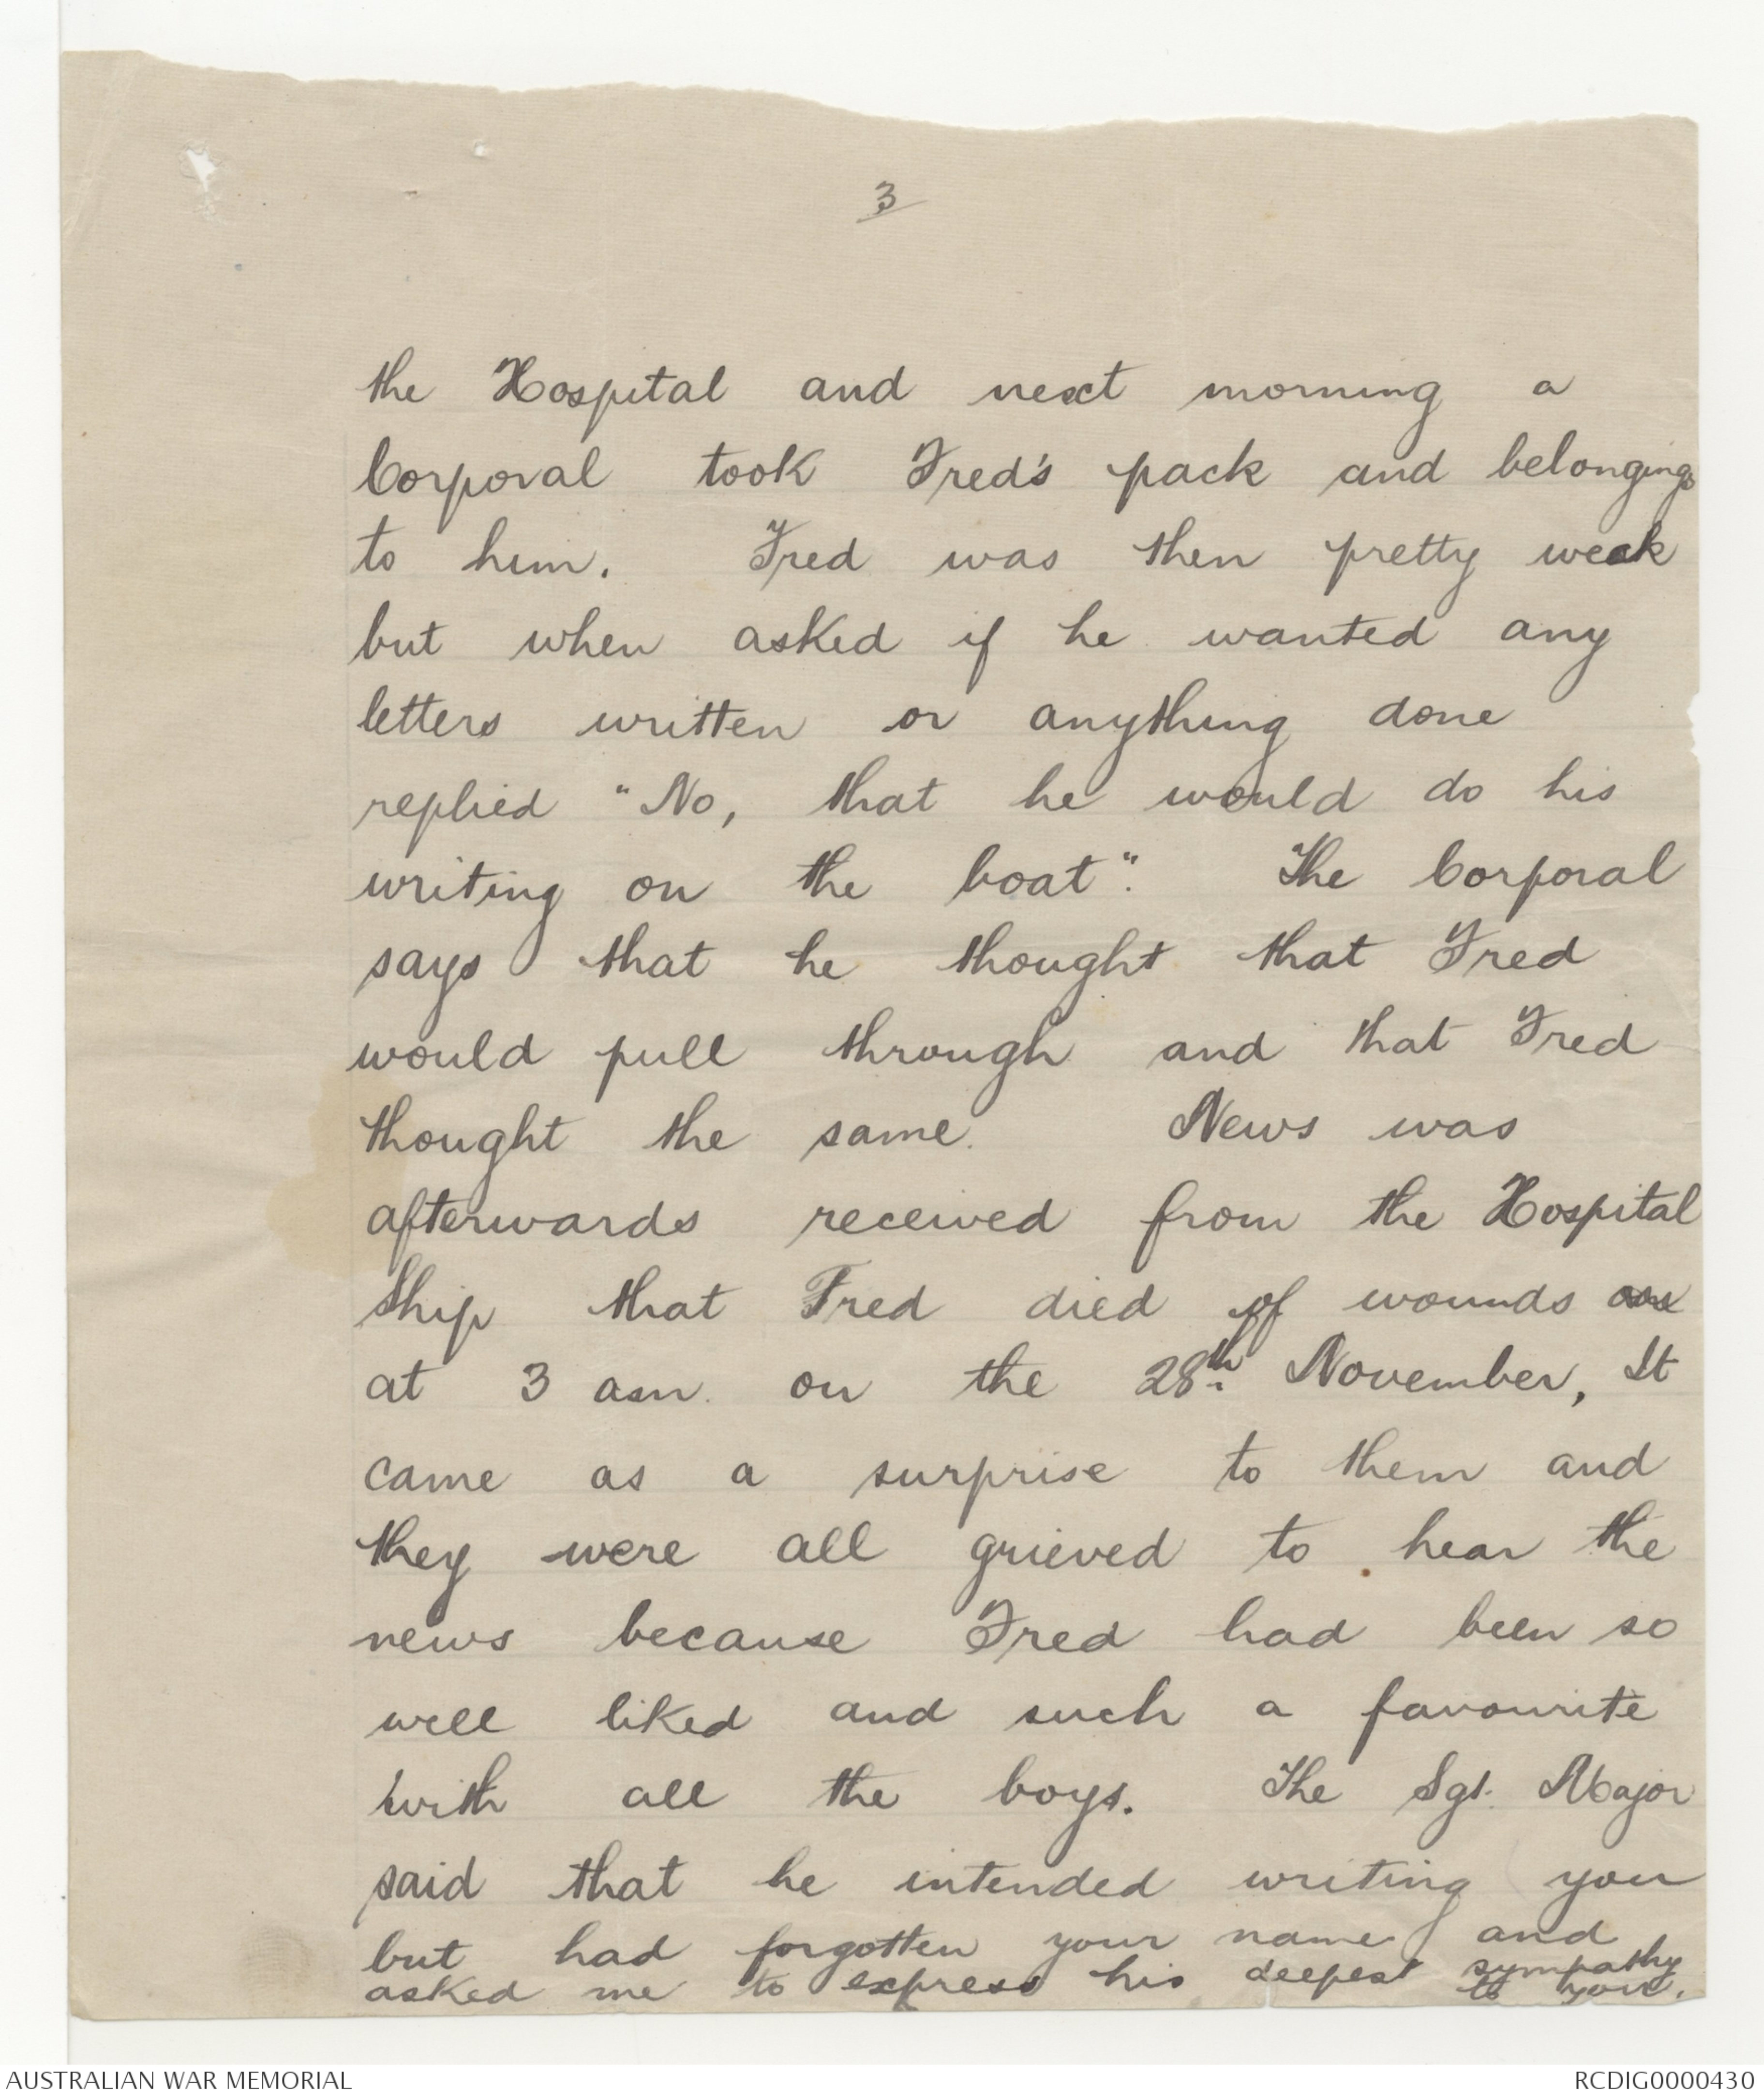 3
the Hospital and next morning a
Corporal took Fred's pack and belongings
to him. Fred was then pretty weak
but when asked if he wanted any
letters written or anything done
replied "No, that he would do his
writing on the boat". The Corporal
says that he thought that Fred
would pull through and that Fred
thought the same. News was
afterwards received from the Hospital
Ship that Fred died of wounds
at 3 am. on the 28th November, It
came as a surprise to them and
they were all grieved to hear the
news because Fred had been so
well liked and such a favourite
with all the boys. The Sgt. Major
said that he intended writing you
but had forgotten your name and
asked me to express his deepest sympathy
to you.
AUSTRALIAN WAR MEMORIAL
RCDIG0000430